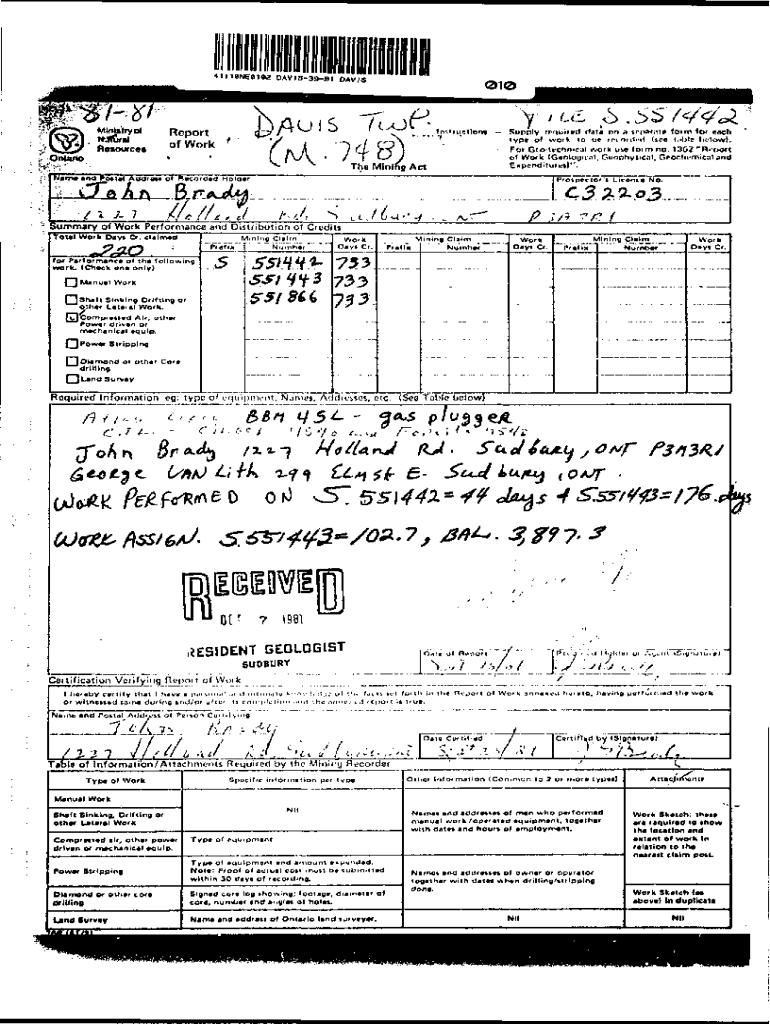 41I10NE0102 DAVIS-39-81 DAVIS
010
81-81
Ministry of Natural Resources
Ontario
Report of Work
DAVIS TWP.
(M. 748)
Instructions –
The Mining Act
FILE S.551442
Supply required data on a separate form for each
type of work to be recorded (see table below).
For Geo-technical work use form no. 1362 "Report
of Work (Geological, Geophysical, Geochemical and
Expenditures)".
Name and Postal Address of Recorded Holder
Prospector's Licence No.
John Brady
C32203
1227 Holland Rd. Sudbury ONT P3A3R1
Summary of Work Performance and Distribution of Credits
Total Work Days Cr. claimed
220
Mining Claim Work Days Cr.
Prefix Number
Mining Claim Work Days Cr.
Prefix Number
Mining Claim Work Days Cr.
Prefix Number
for Performance of the following
work. (Check one only)
S 551442 733
551443 733
551866 733
Manual Work
Shaft Sinking Drifting or
other Lateral Work.
Compressed Air, other
Power driven or
mechanical equip.
Power Stripping
Diamond or other Core
drilling
Land Survey
Required Information eg: type of equipment, Names, Addresses, etc. (See Table below)
BBM 45L - gas pluggeR
John Brady 1227 Holland Rd. Sudbury, ONT P3A3R1
George VAN Lith 299 ELM St E. Sudbury, ONT.
WORK PERFORMED ON S. 551442 = 44 days & S.551443 = 176. days
WORK ASSIGN. S.551443 = 102.7, BAL. 3,897.3
RECEIVED
OCT 7 1981
RESIDENT GEOLOGIST
SUDBURY
Date of Report
Recorded Holder or Agent (Signature)
Certification Verifying Report of Work
I hereby certify that I have a personal and intimate knowledge of the facts set forth in the Report of Work annexed hereto, having performed the work
or witnessed same during and/or after its completion and the annexed report is true.
Name and Postal Address of Person Certifying
John Brady
1227 Holland Rd. Sudbury ONT
Date Certified
Certified by (Signature)
J. Brady
Table of Information/Attachments Required by the Mining Recorder
Type of Work
Specific information per type
Other information (Common to 2 or more types)
Attachments
Manual Work
Nil
Names and addresses of men who performed
manual work/operated equipment, together
with dates and hours of employment.
Work Sketch: these
are required to show
the location and
extent of work in
relation to the
nearest claim post.
Shaft Sinking, Drifting or
other Lateral Work
Compressed air, other power
driven or mechanical equip.
Type of equipment
Power Stripping
Type of equipment and amount expended.
Note: Proof of actual cost must be submitted
within 30 days of recording.
Names and addresses of owner or operator
together with dates when drilling/stripping
done.
Diamond or other core
drilling
Signed core log showing; footage, diameter of
core, number and angles of holes.
Work Sketch (as
above) in duplicate
Land Survey
Name and address of Ontario land surveyor.
Nil
Nil